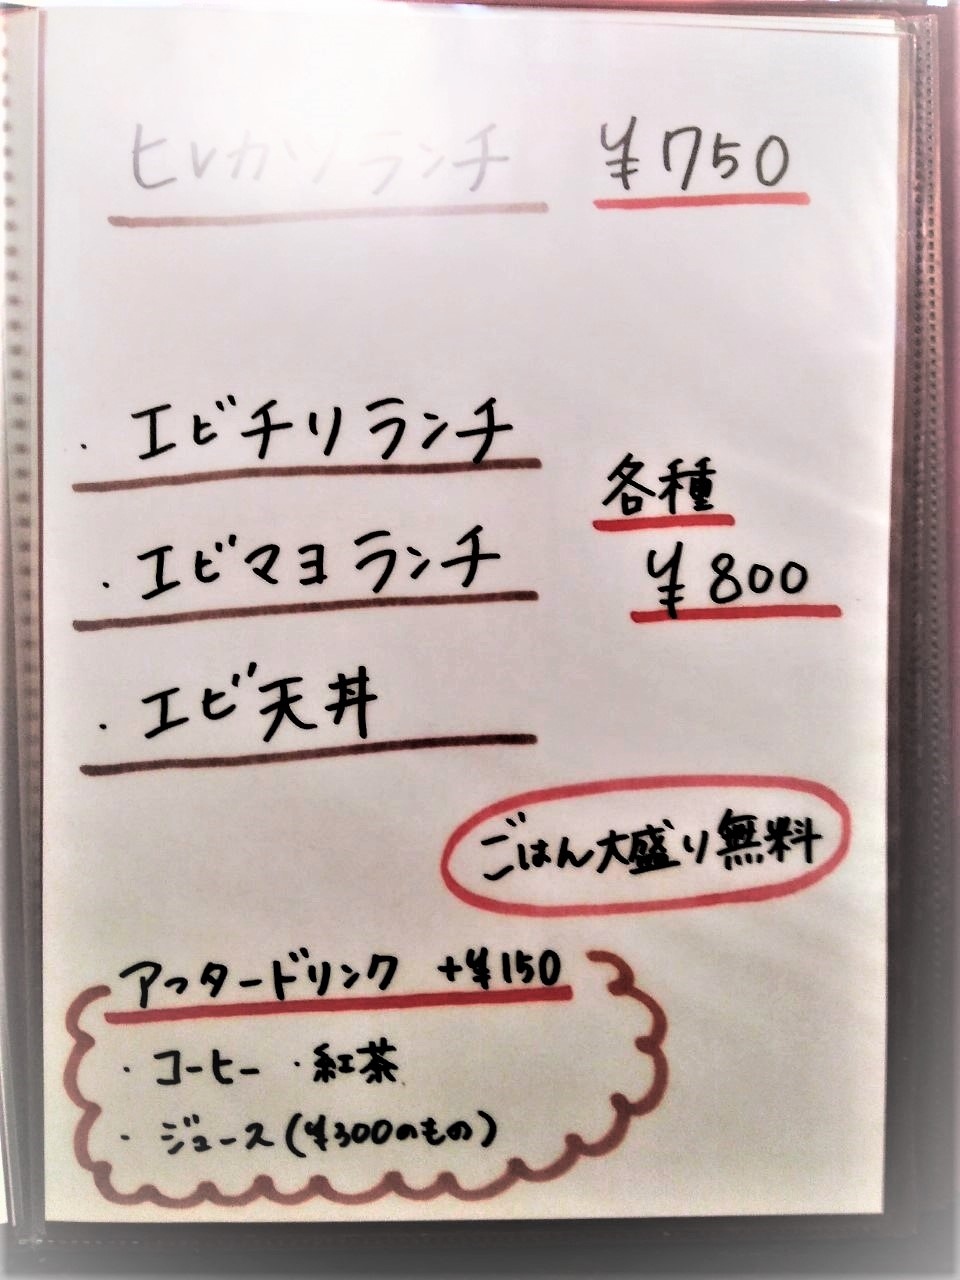 ヒレカツランチ ¥750
・エビチリランチ
各種
・エビマヨランチ ¥800
・エビ天丼
ごはん大盛り無料
アフタードリンク +¥150
・コーヒー ・紅茶
・ジュース(¥300のもの)